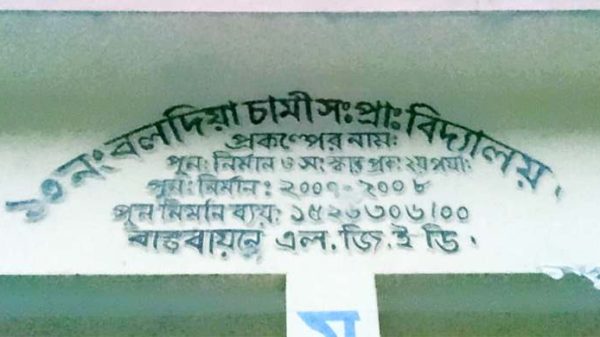 ১৩ নং বলদিয়া চামী সঃ প্রাঃ বিদ্যালয়।
প্রকল্পের নাম:
পুন: নির্মান ও সংস্কার প্রক: ২য় পর্যা:
পুন: নির্মান: ২০০৭-২০০৮
পুন নির্মান ব্যয়: ১৫২৬৩০৬/০০
বাস্তবায়নে এল. জি. ই ডি.